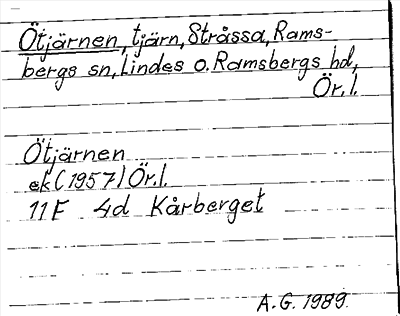 Ötjärnen, tjärn, Stråssa, Rams-
bergs sn, Lindes o. Ramsbergs hd,
Ör.l.
Ötjärnen
ek (1957) Ör.l.
11F 4d Kårberget
A.G. 1989.